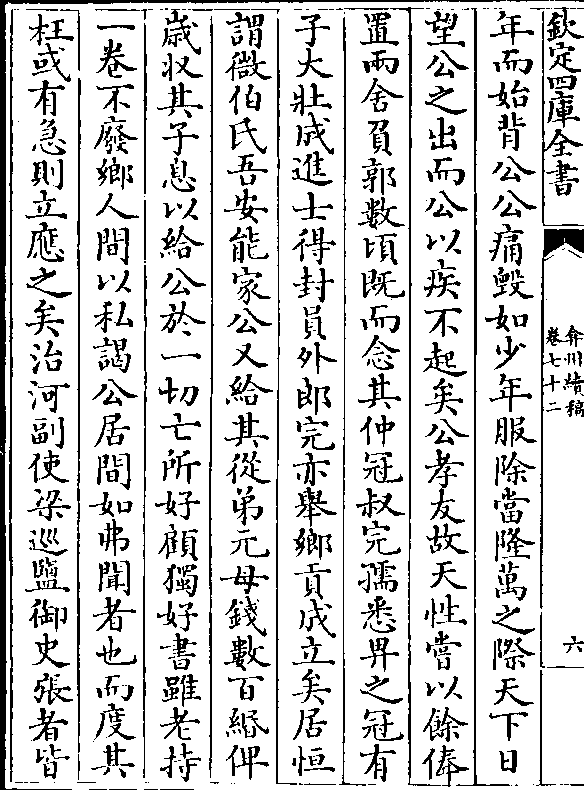 欽定四庫全書
弇州續稿
卷七十二
六
年而始背公公痛毀如少年服除當隆萬之際天下日
望公之出而公以疾不起矣公孝友故天性嘗以餘俸
置兩舍負郭數頃既而念其仲冠叔完孺悉畀之冠有
子大壯成進士得封員外郎完亦舉鄉貢成立矣居恒
謂微伯氏吾安能家公又給其從弟元母錢數百緡俾
歲収其子息以給公於一切亡所好顧獨好書雖老持
一卷不廢鄉人間以私謁公居間如弗聞者也而度其
枉或有急則立應之矣治河副使梁巡鹽御史張者皆